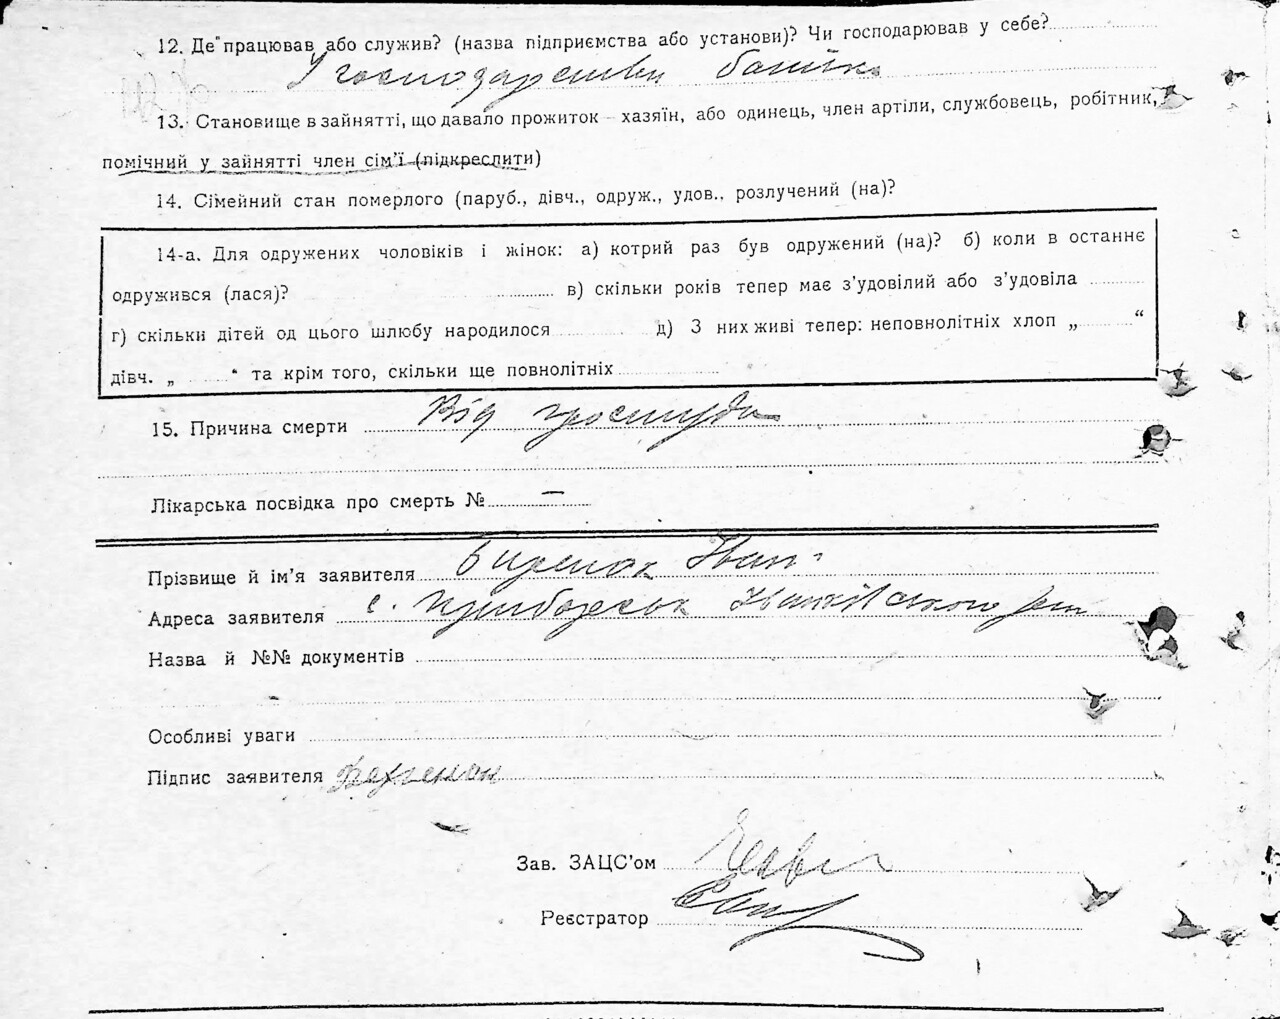 12. Де працював або служив? (назва підприємства або установи)? Чи господарював у себе?
У господарстви батька
13. Становище в зайнятті, що давало прожиток – хазяїн, або одинець, член артіли, службовець, робітник,
помічний у зайнятті член сім’ї (підкреслити)
14. Сімейний стан померлого (паруб., дівч., одруж., удов., розлучений (на)?
14-а. Для одружених чоловіків і жінок: а) котрий раз був одружений (на)? б) коли в останнє
одружився (лася)? в) скільки років тепер має з’удовілий або з’удовіла
г) скільки дітей од цього шлюбу народилося д) З них живі тепер: неповнолітніх хлоп „ “
дівч. „ “ та крім того, скільки ще повнолітніх
15. Причина смерти Від простуди
Лікарська посвідка про смерть № —
Прізвище й ім’я заявителя Іван
Адреса заявителя с.
Назва й №№ документів
Особливі уваги
Підпис заявителя
Зав. ЗАЦС’ом
Реєстратор